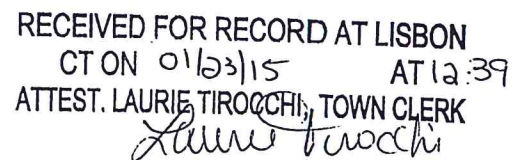 RECEIVED FOR RECORD AT LISBON
CT ON 01/23/15 AT 12:39
ATTEST. LAURIE TIROCCHI, TOWN CLERK
Laurie Tirocchi